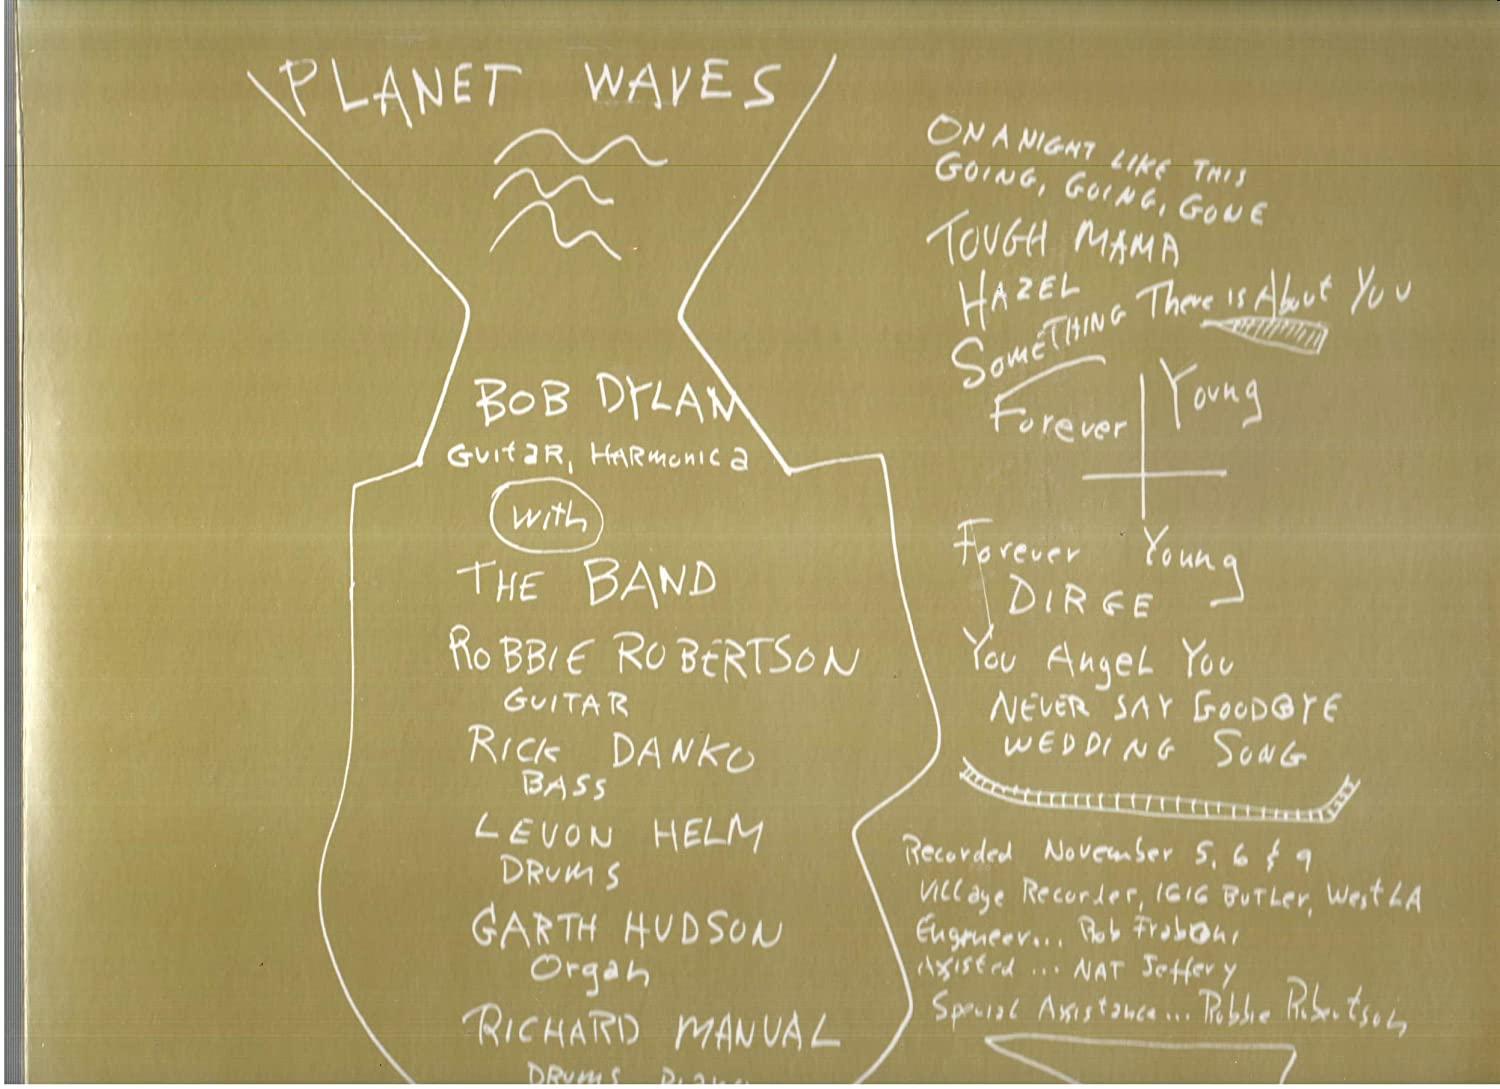 PLANET WAVES
BOB DYLAN
GUITAR, HARMONICA
WITH
THE BAND
ROBBIE ROBERTSON
GUITAR
RICK DANKO
BASS
LEVON HELM
DRUMS
GARTH HUDSON
Organ
RICHARD MANUAL
DRUMS
ON A NIGHT LIKE THIS
GOING, GOING, GONE
TOUGH MAMA
HAZEL
SOMETHING There is About You
Forever Young
Forever Young
DIRGE
You Angel You
NEVER SAY GOODBYE
WEDDING SONG
Recorded November 5, 6 & 9
Village Recorder, 1616 BUTLER, West LA
Engineer... Rob Fraboni
Assisted ... NAT Jeffery
Special Assistance... Robbie Robertson